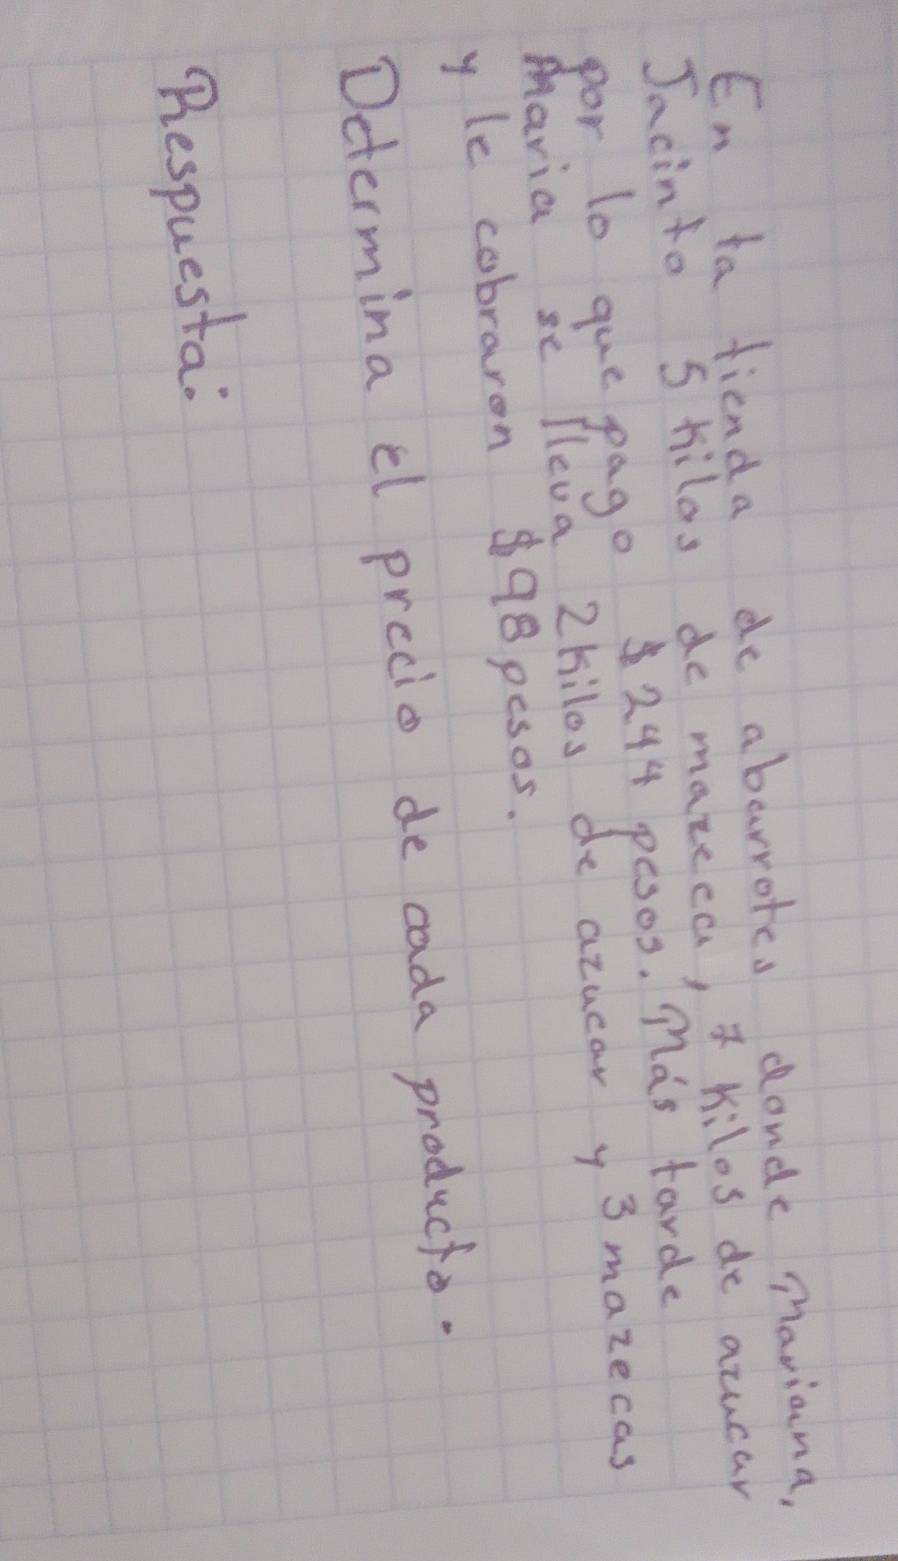 En la tienda de abarrotes donde Mariana,
Jacinto 5 kilos de mazeca, 7 kilos de azucar
por lo que pago $244 pesos. Más tarde
Maria se lleva 2 kilos de azucar y 3 mazecas
y le cobraron $98 pesos.
Determina el precio de cada producto.
Respuesta: